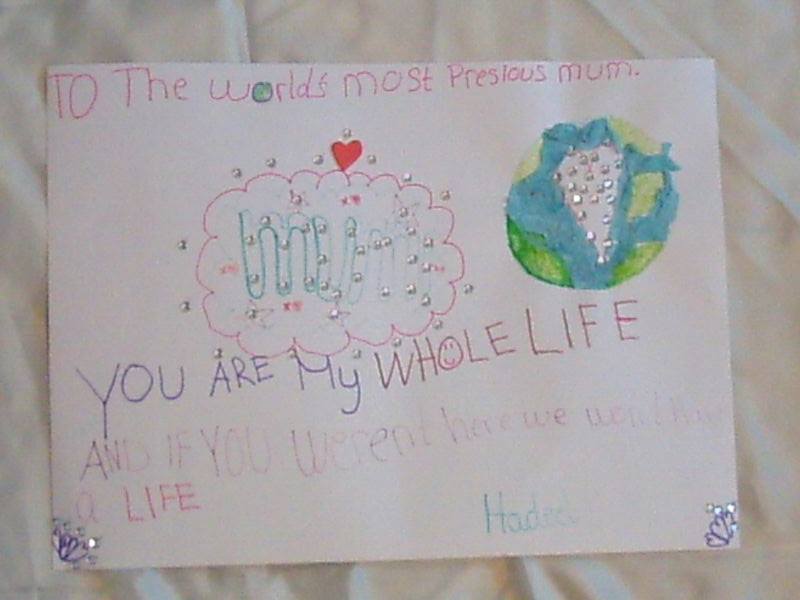 TO The world's most Presious mum.
mum
YOU ARE My WHOLE LIFE
AND IF YOU weren't here we won't
a LIFE